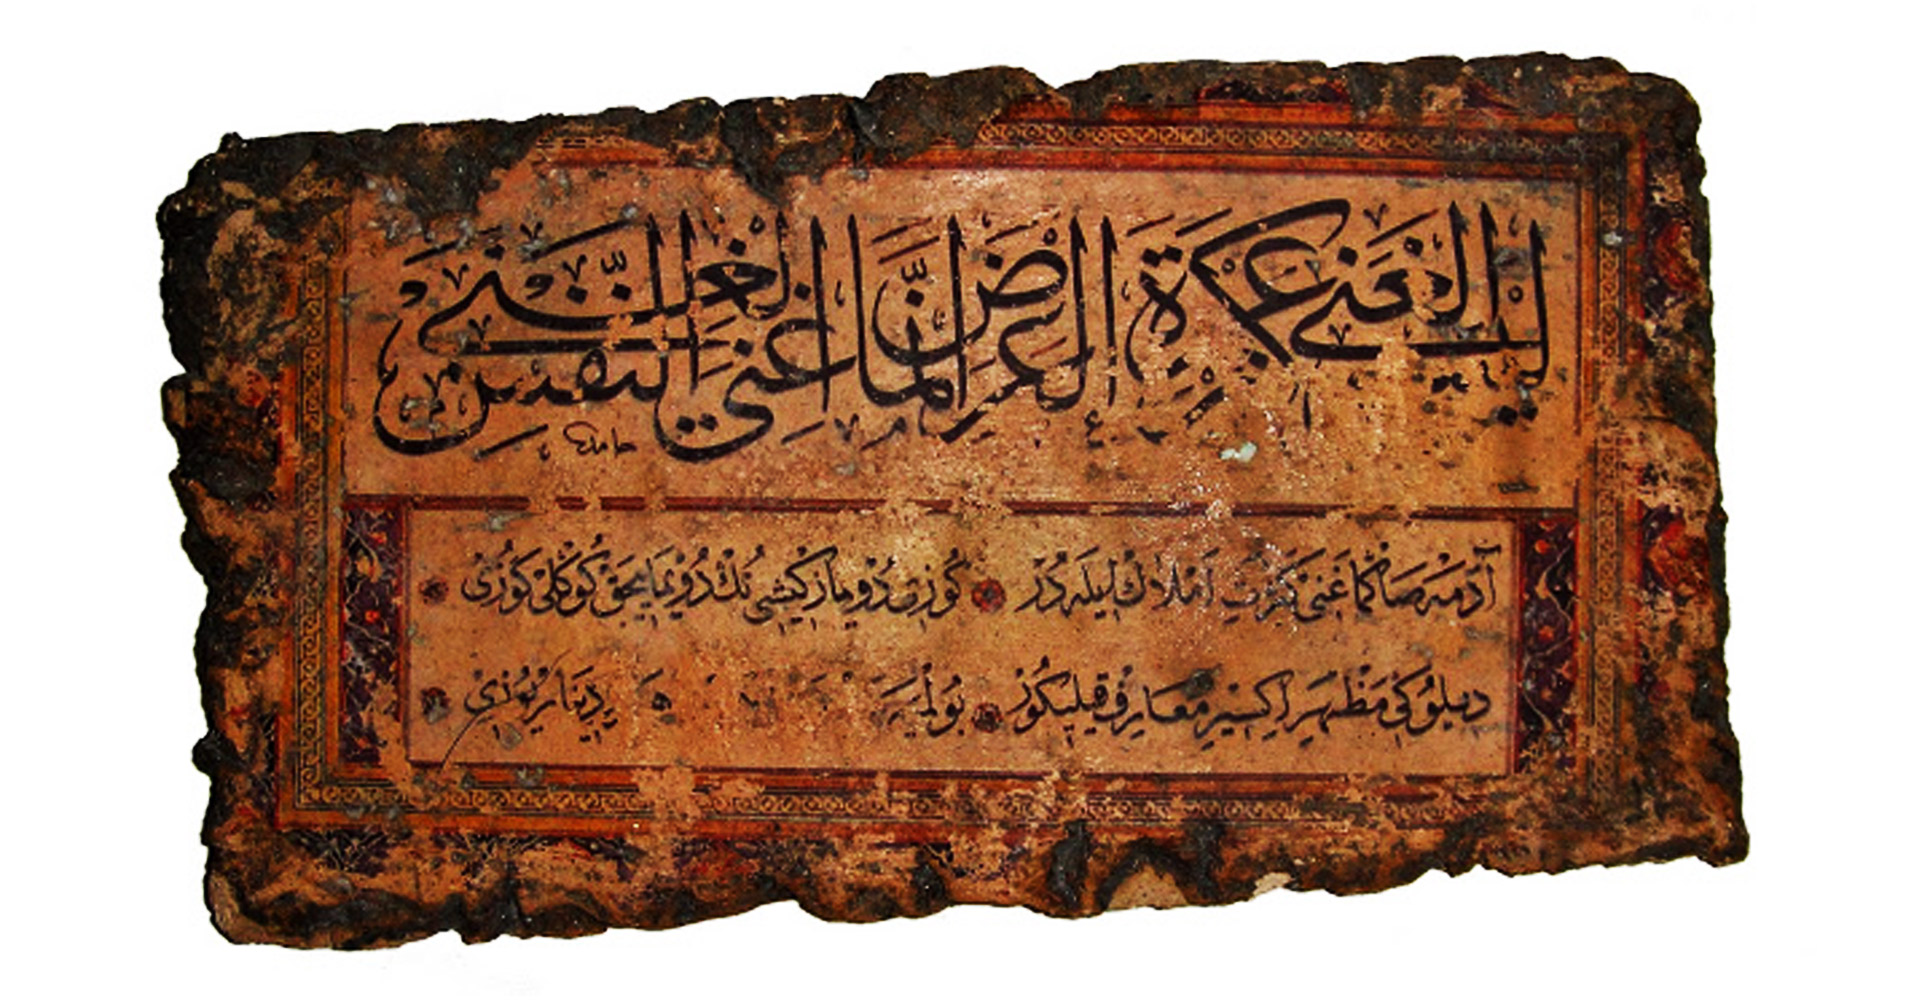 ليس الغنى عن كثرة العرض ولكن الغنى غنى النفس
حامد
آدمه صانما غنى كثرت املاك ايله در كوزى دويماز كيشى نك دويمايجق كوكلى كوزى
مظهر اكسير معارف قيليكوز بولميه دينار يوزى